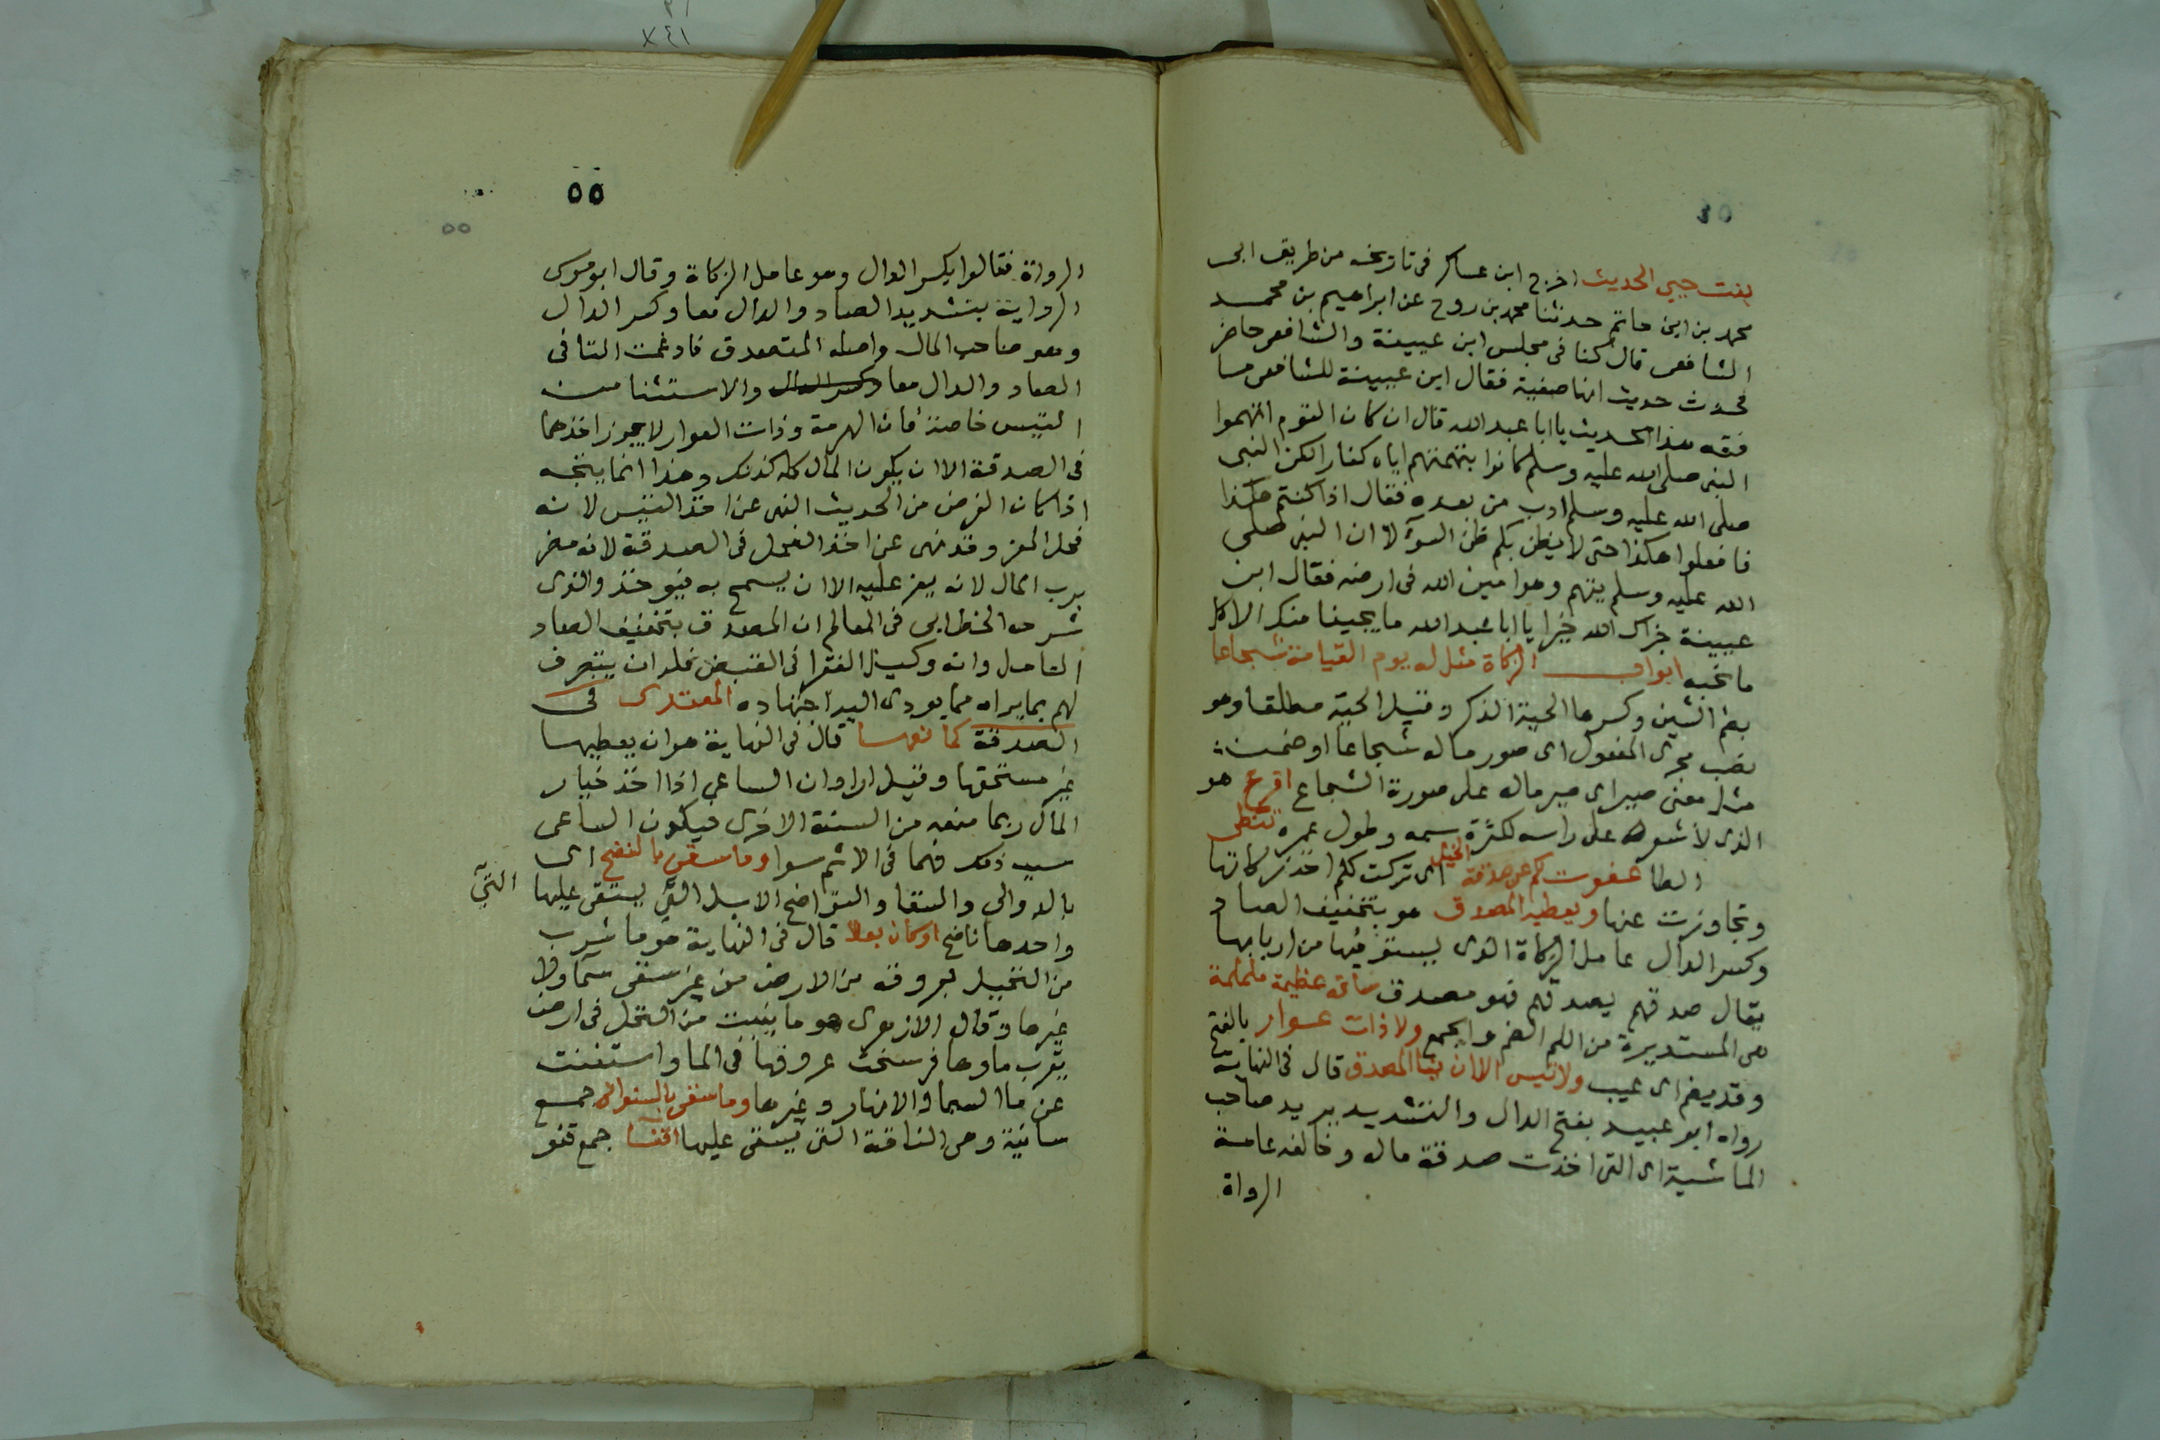 بنت حيي الحديث اخرج ابن عساكر فى تاريخه من طريق ابى
محمد بن ابى حاتم حدثنا محمد بن روح عن ابراهيم بن محمد
الشافعى قال كنا فى مجلس ابن عيينة والشافعى حاضر
فحدث حديث انها صفية فقال ابن عيينة للشافعى ما
فقه هذا الحديث يا ابا عبد الله قال ان كان القوم اتهموا
النبى صلى الله عليه وسلم كانوا بتهمتهم اياه كفارا لكن النبى
صلى الله عليه وسلم ادب من بعده فقال اذا كنتم هكذا
فافعلوا هكذا حتى لا يظن بكم ظن السوء لا ان النبى صلى
الله عليه وسلم يتهم وهو امين الله فى ارضه فقال ابن
عيينة جزاك الله خيرا يا ابا عبد الله ما يجينا منك الا كل
ما نحبه ابواب الزكاة مثل له يوم القيامة شجاعا
بضم الشين وكسرها الحية الذكر وقيل الحية مطلقا وهو
نصب مجرى المفعول اى صور ماله شجاعا او ضمن
مثل معنى صير اى صير ماله على صورة الشجاع اقرع هو
الذى لا شعر على راسه لكثرة سمه وطول عمره تنطى
الطا عفوت لكم عن صدقة الخيل اى تركت لكم اخذ زكاتها
وتجاوزت عنها ويعطيه المصدق هو بتخفيف الصاد
وكسر الدال عامل الزكاة الذى يستوفيها من اربابها
يقال صدقهم يصدقهم فهو مصدق ساقه عظيمة ململمة
هى المستديرة من اللم الضم والجمع ولا ذات عوار بالفتح
وقد يضم اى عيب ولا تيس الا ان يشا المصدق قال فى النهاية
رواه ابو عبيد بفتح الدال والتشديد يريد صاحب
الماشية اى التى اخذت صدقة ماله وخالفه عامة
الرواة
٥٥
٥٥
الرواة فقالوا بكسر الدال وهو عامل الزكاة وقال ابو موسى
الرواية بتشديد الصاد والدال معا وكسر الدال
وهو صاحب المال واصله المتصدق فادغمت التا فى
الصاد والدال معا وكسر الدال والاستثنا من
التيس خاصة فان الهرمة وذات العوار لا يجوز اخذهما
فى الصدقة الا ان يكون المال كله كذلك وهذا انما يتجه
اذا كان الغرض من الحديث النهى عن اخذ التيس لانه
فحل المعز وقد نهى عن اخذ الفحل فى الصدقة لانه مضر
برب المال لانه يعز عليه الا ان يسمح به فيوخذ والذى
شرحه الخطابى فى المعالم ان المصدق بتخفيف الصاد
العامل وانه وكيل الفقرا فى القبض فله ان يتصرف
لهم بما يراه مما يودى اليه اجتهاده المعتدى فى
الصدقة كمانعها قال فى النهاية هو ان يعطيها
غير مستحقها وقيل اراد ان الساعى اذا اخذ خيار
المال ربما منعه من السنة الاخرى فيكون الساعى
سبب ذلك فهما فى الاثم سوا وما سقى بالنضح اى
بالدوالى والسقا والنواضح الابل التى يستقى عليها
التى
واحدها ناضح او كان بعلا قال فى النهاية هو ما شرب
من النخيل بعروقه من الارض من غير سقى سما ولا
غيرها وقال الازهرى هو ما ينبت من النخل فى ارض
يقرب ماوها فرسخت عروقها فى الما واستغنت
عن ما السما والانهار وغيرها وما سقى بالسوانى جمع
سانية وهى الناقة التى يستقى عليها اقنا جمع قنو